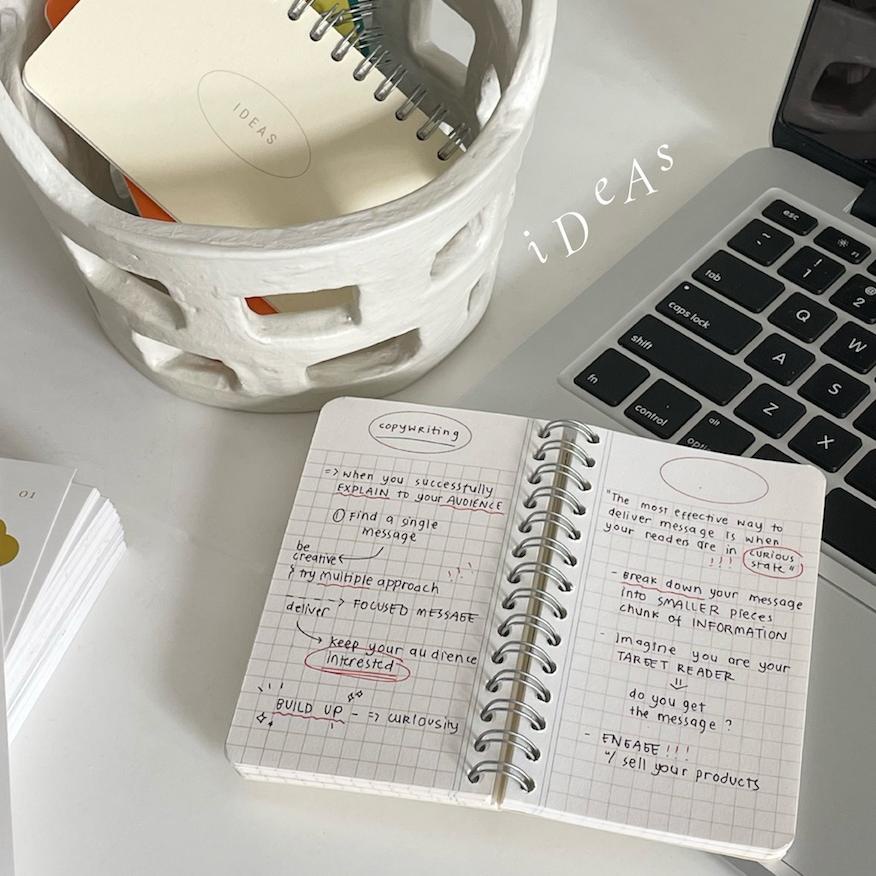 IDEAS
iDeAs
01
esc
~
`
!
1
@
2
tab
Q
W
caps lock
A
S
shift
Z
X
fn
control
alt
copywriting
=> when you successfully
EXPLAIN to your AUDIENCE
① Find a single
message
be
creative
& try multiple approach !!!
-----> FOCUSED MESSAGE
deliver
keep your audience
interested
BUILD UP - => curiousity
"The most effective way to
deliver message is when
your readers are in curious
!!! state"
- Break down your message
into SMALLER pieces
chunk of INFORMATION
- Imagine you are your
TARGET READER
do you get
the message ?
- ENGAGE !!!
w/ sell your products